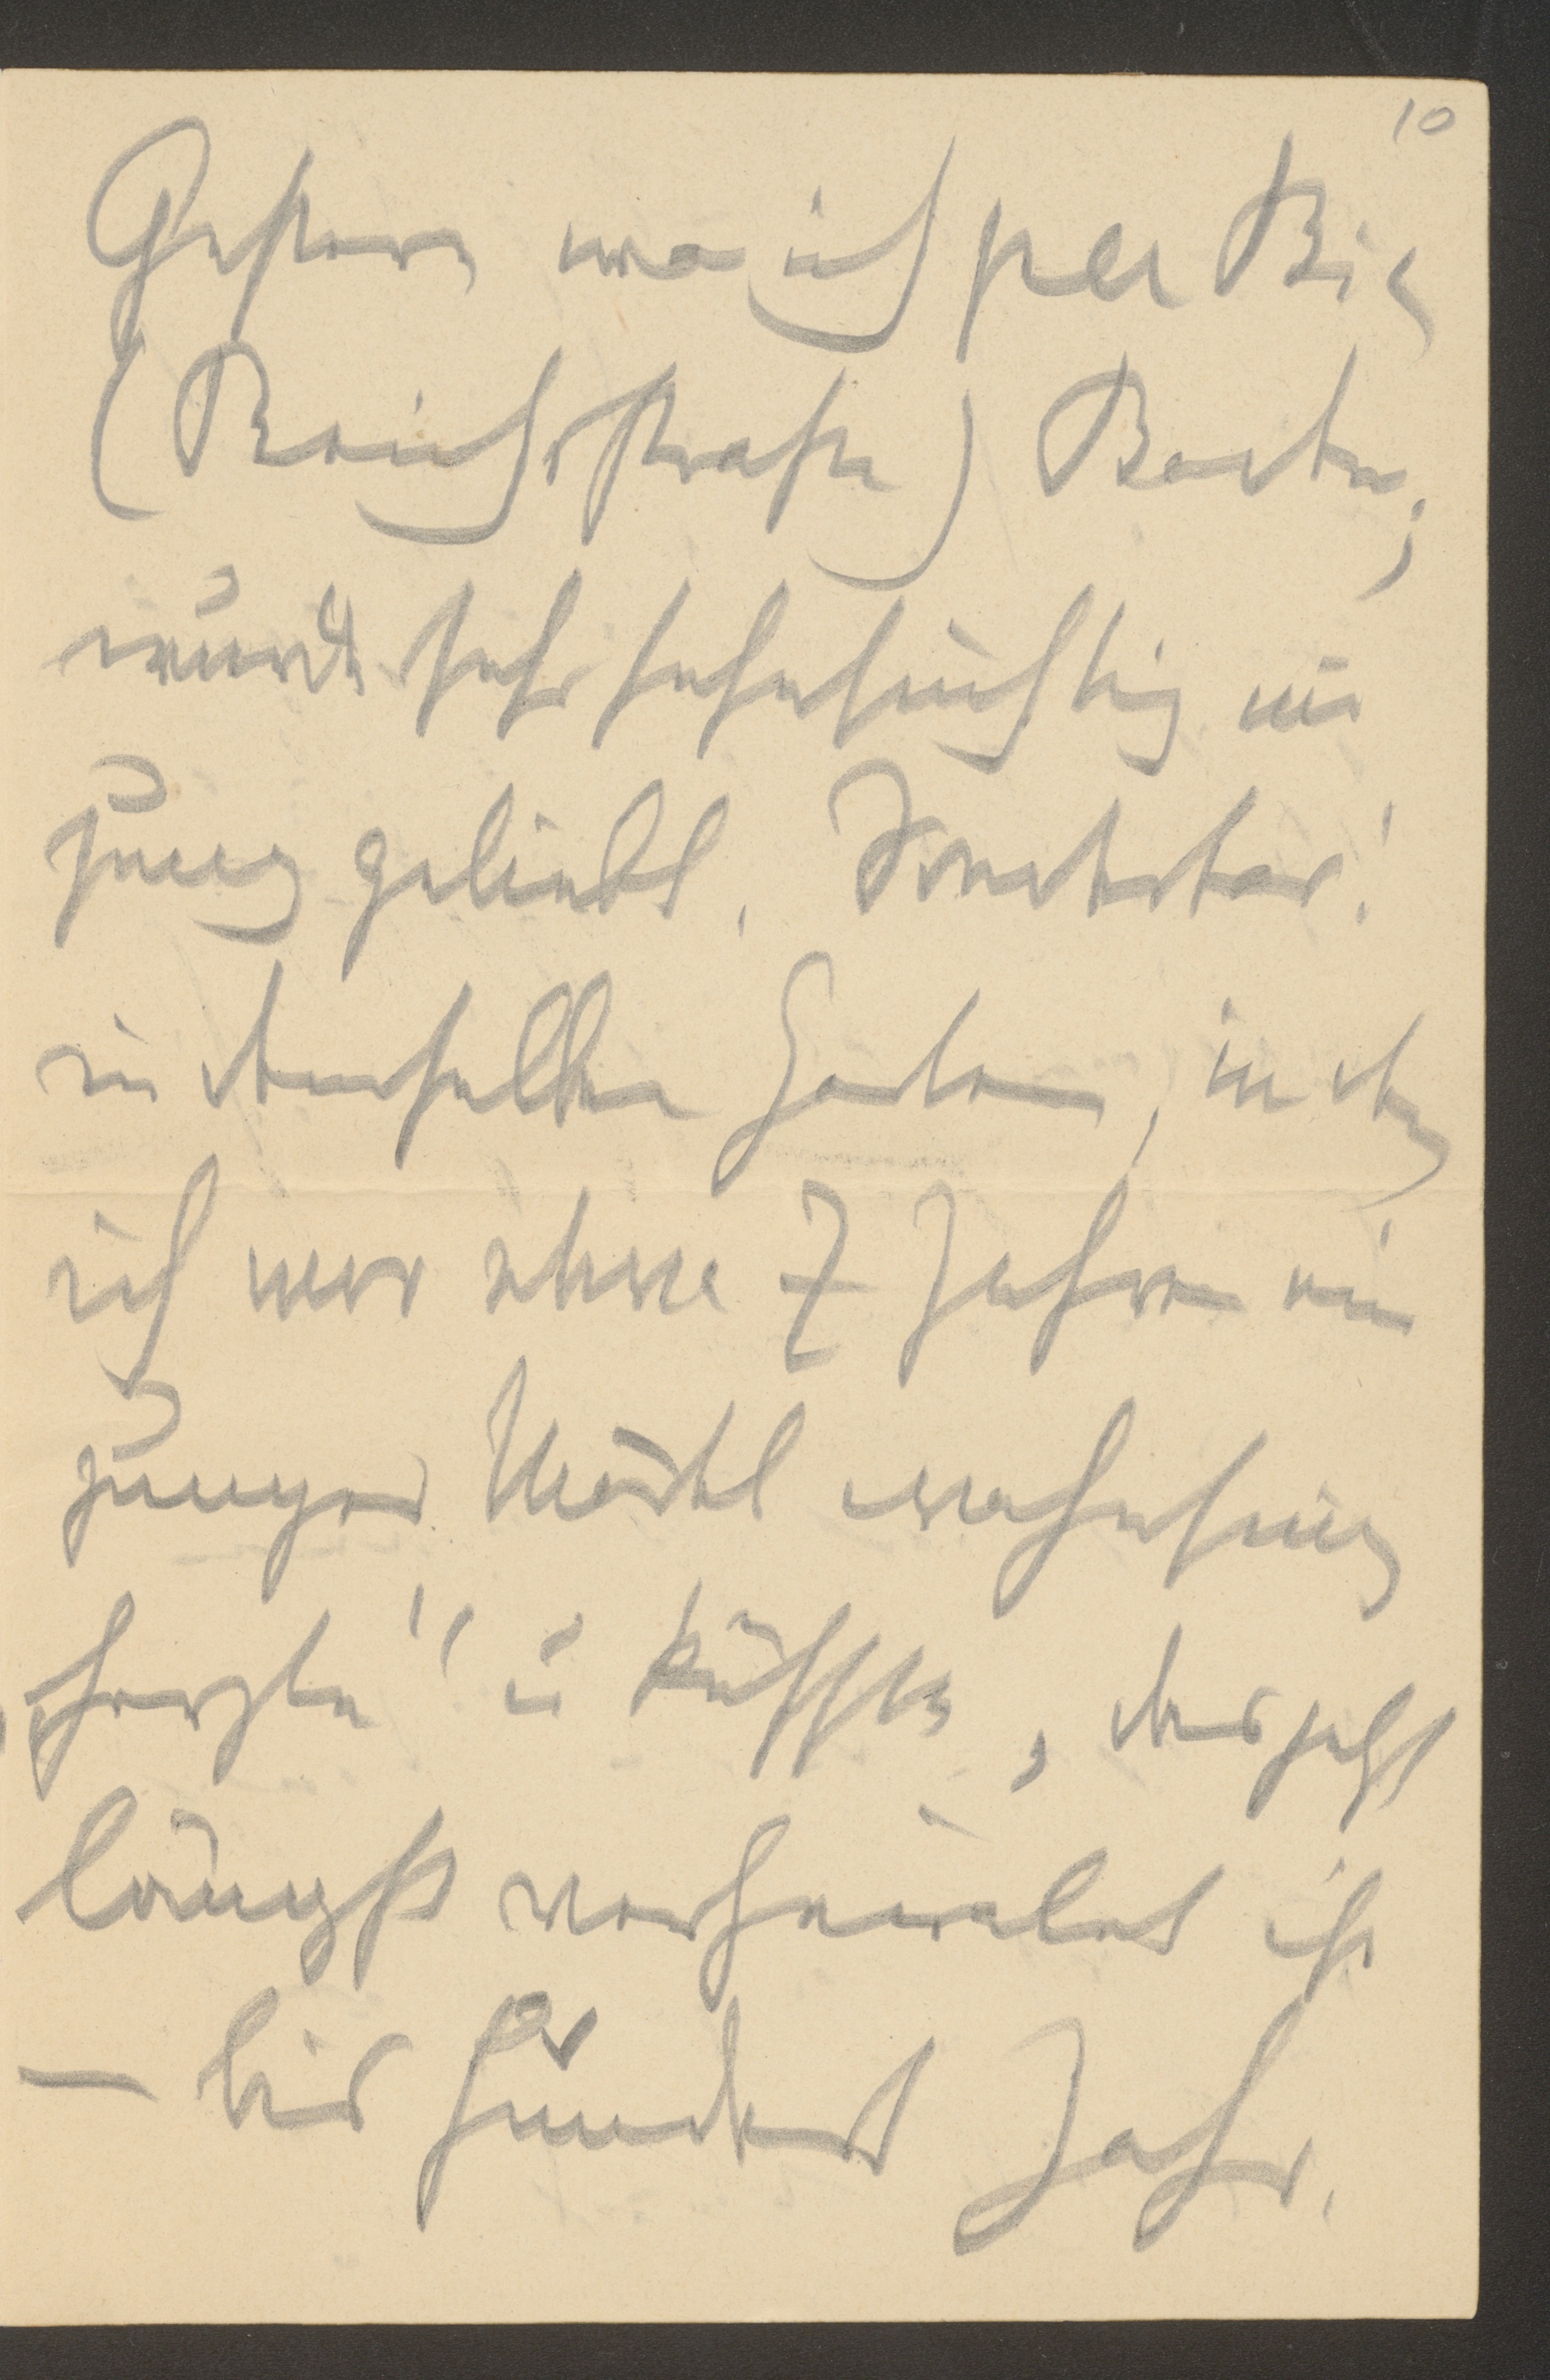 10
Gestern war ich per Bic
(Reichsstraße) Baden;
wurde sehr sehnsüchtig
jung geliebt. Sonderbar!
in demselben Garten, in dem
ich vor etwa 7 Jahren ein
junges Mädel wahnsinnig
„herzte“ u küsste, das jetzt
längst verheiratet ist
– bis hundert Jahr.